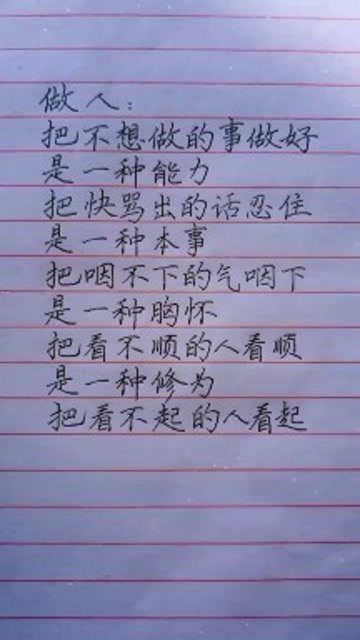 做人：
把不想做的事做好
是一种能力
把快骂出的话忍住
是一种本事
把咽不下的气咽下
是一种胸怀
把看不顺的人看顺
是一种修为
把看不起的人看起